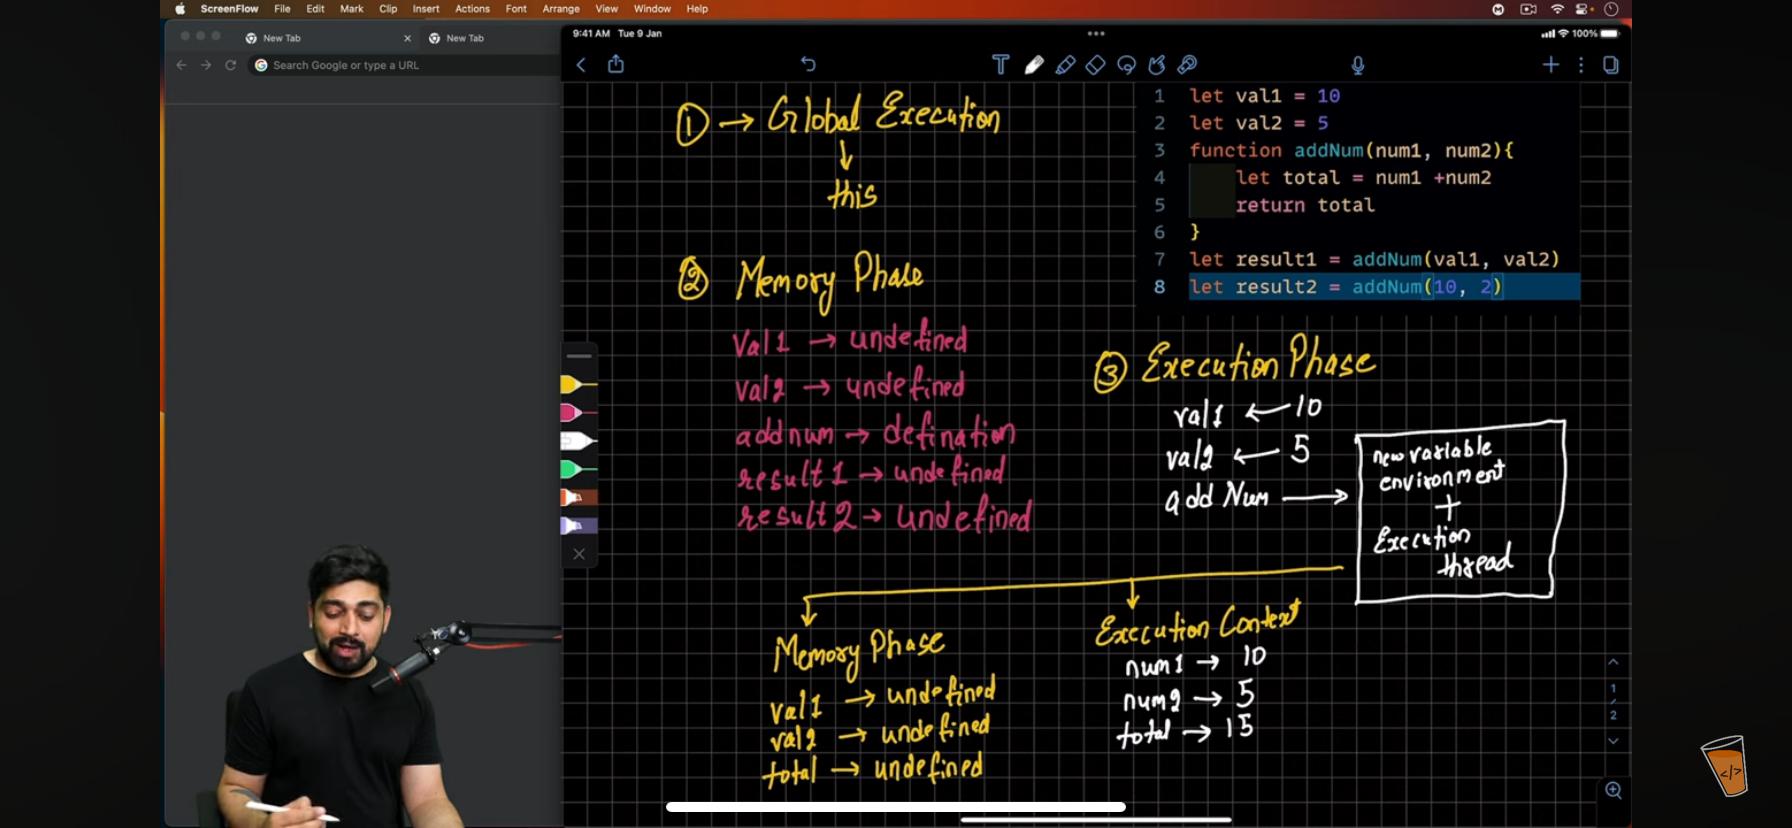 ScreenFlow File Edit Mark Clip Insert Actions Font Arrange View Window Help
New Tab
New Tab
Search Google or type a URL
9:41 AM Tue 9 Jan
100%
① → Global Execution
↓
this
② Memory Phase
Val1 → undefined
val2 → undefined
addnum → defination
result1 → undefined
result2 → undefined
1 let val1 = 10
2 let val2 = 5
3 function addNum(num1, num2){
4 let total = num1 +num2
5 return total
6 }
7 let result1 = addNum(val1, val2)
8 let result2 = addNum(10, 2)
③ Execution Phase
val1 ← 10
val2 ← 5
add Num →
new variable
environment
+
Execution
thread
Memory Phase
val1 → undefined
val2 → undefined
total → undefined
Execution Context
num1 → 10
num2 → 5
total → 15
1
/
2
T
M
</>